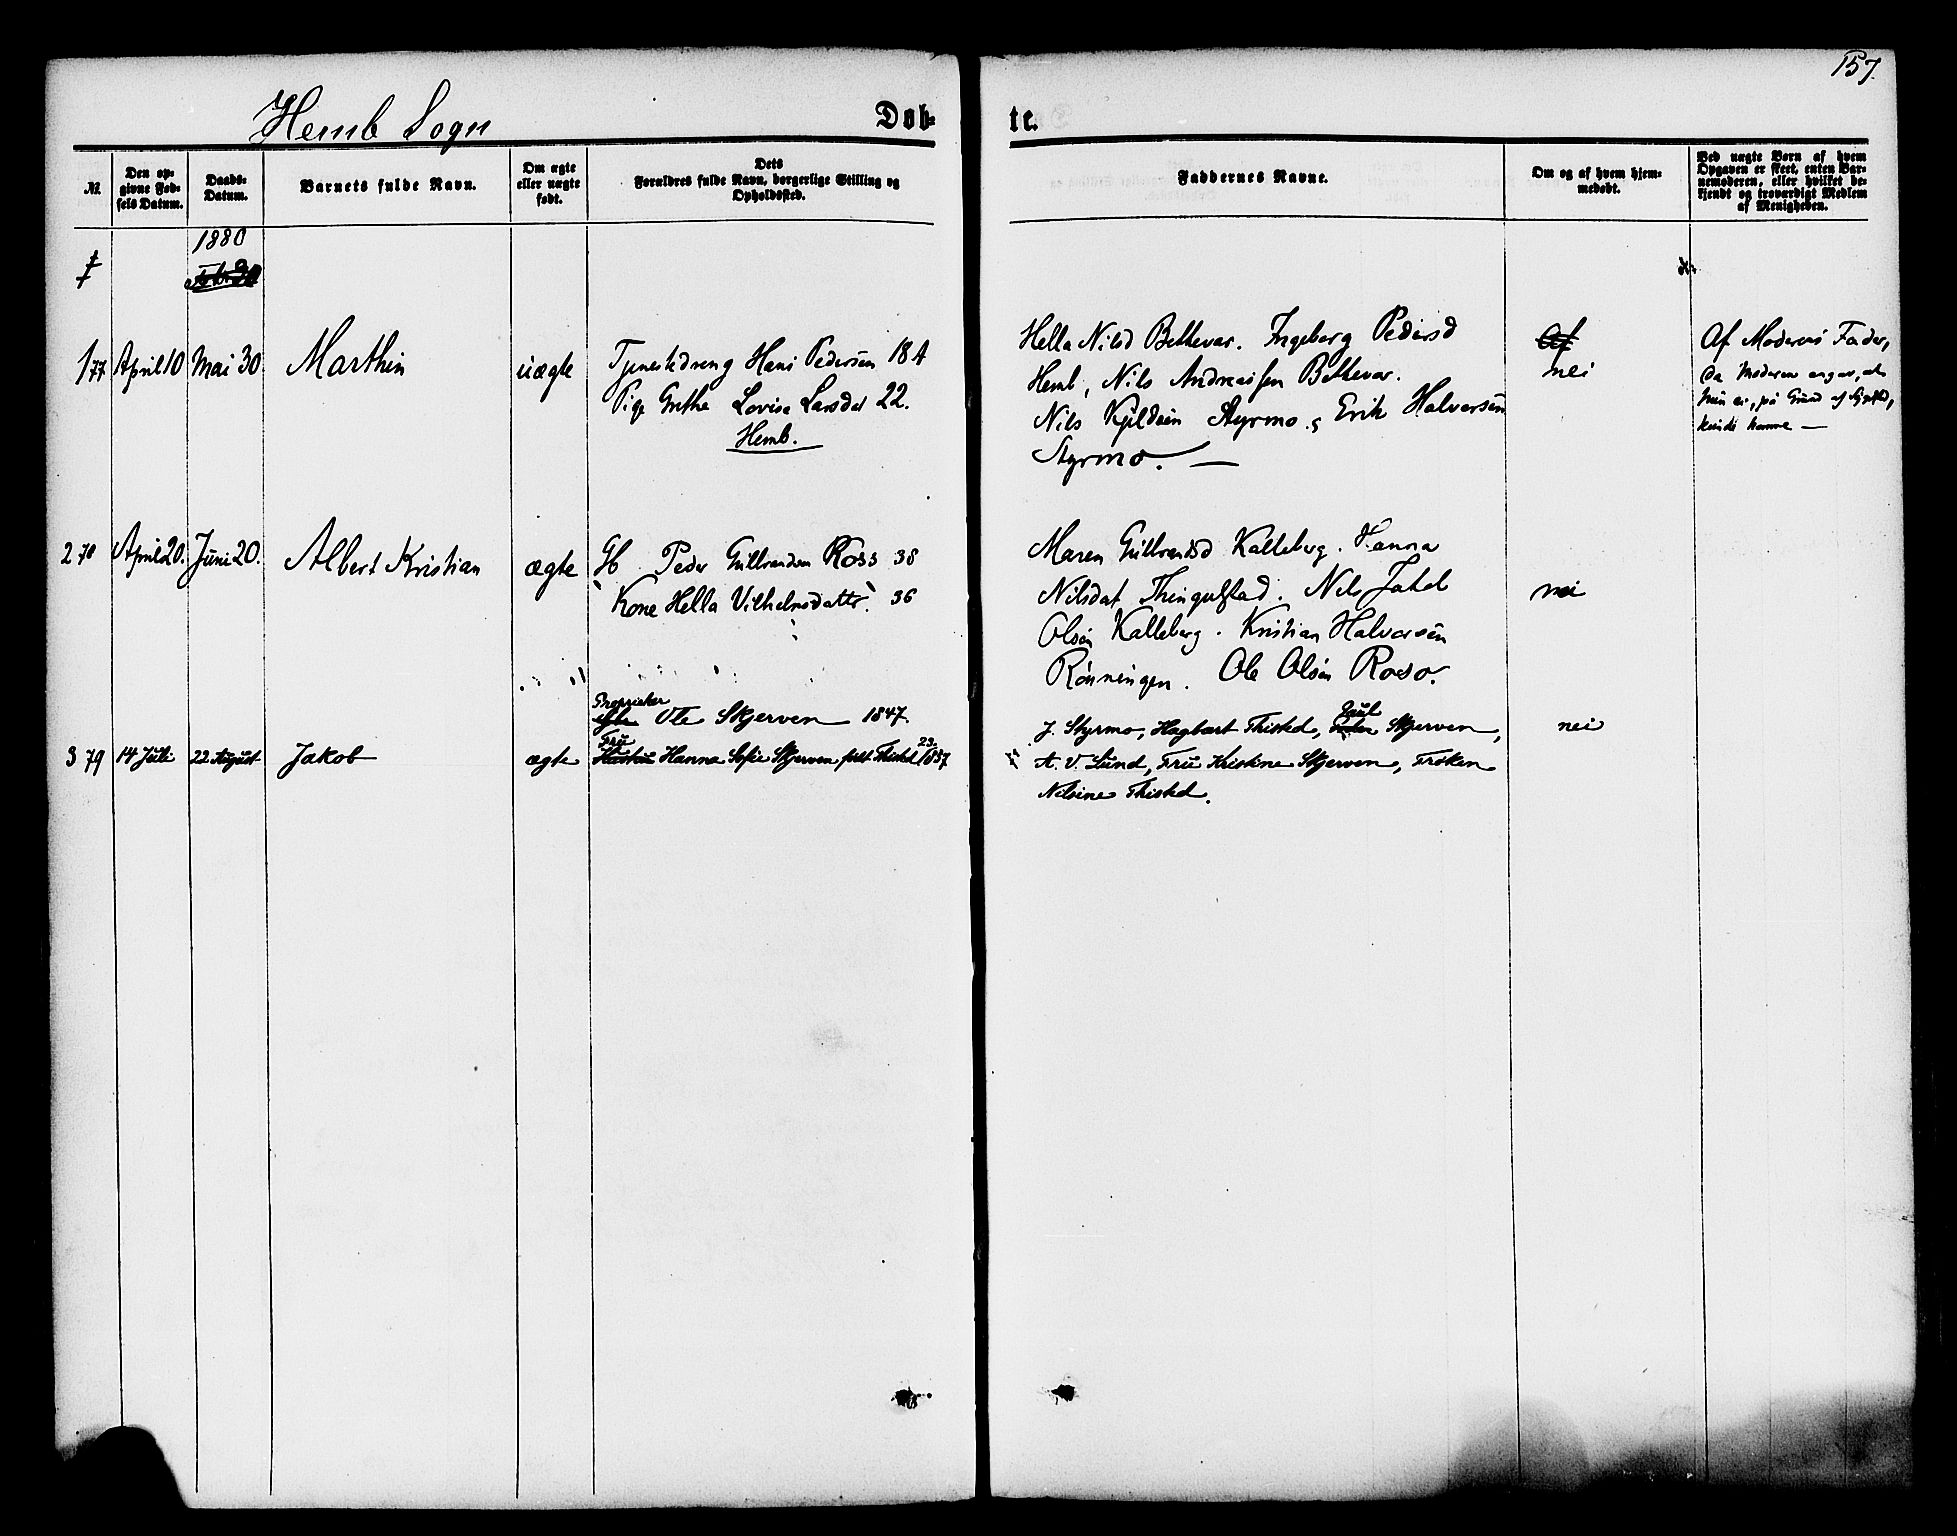 157.
Hemb Sogn
Døb-
te.
№
Den op-
givne Fød-
sels Datum.
Daabs-
Datum.
Barnets fulde Navn.
Om ægte
eller uægte
født.
Dets
Forældres fulde Navn, borgerlige Stilling og
Opholdssted.
Faddernes Navne.
Om og af hvem hjem-
medøbt.
Ved uægte Børn af hvem
Opgaven er skeet, enten Bar-
nemoderen, eller hvilket be-
kjendt og troværdigt Medlem
af Menigheden.
1880
1 77 April 10 Mai 30 Marthin uægte
Tjenestedreng Hans Pedersen 18 A
Pige Grethe Lovise Larsdat 22.
Hemb.
Hella Nilsd Bettevar. Ingeborg Pedersd
Hemb, Nils Andreassen Bettevar.
Nils Kjeldsen Styrmo. Erik Halvorsen
Styrmo. —
Af
nei
Af Moderens Fader,
da Moderen angav, at
hun ei, på Grund af
kunde komme —
2 78 April 20. Juni 20. Albert Kristian ægte
Peder Gulbrandsen Ross 38
Kone Hella Vilhelmsdatter. 36
Maren Gulbrandsd Kalleberg. Hanna
Nilsdat Thingulstad. Nils Jakob
Olsen Kalleberg. Kristian Halvorsen
Rönningen. Ole Olsen Ross.
nei
3 79 14 Juli 22 August Jakob ægte
Proprietær
Ole Skjerven 1847.
Fru 23
Hustru Hanna Sofie Skjerven født Thisted 1857
Paul
J. Styrmo, Hagbart Thisted, Skjerven,
A. V. Lund, Fru Kristine Skjerven, Frøken
Nilsine Thisted.
nei